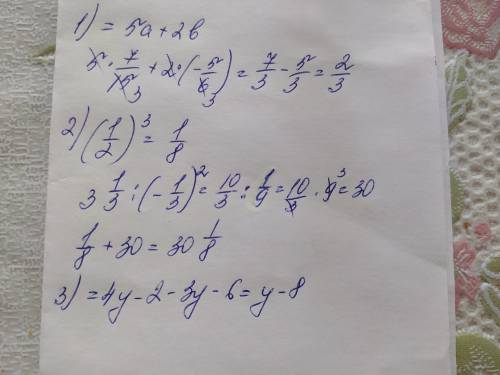 1) = 5a + 2b
5 · 7/15 + 2 · (-5/6) = 7/3 - 5/3 = 2/3
2) (1/2)³ = 1/8
3 1/3 : (-1/3)² = 10/3 : 1/9 = 10/3 · 9 = 30
1/8 + 30 = 30 1/8
3) = 4y - 2 - 3y - 6 = y - 8